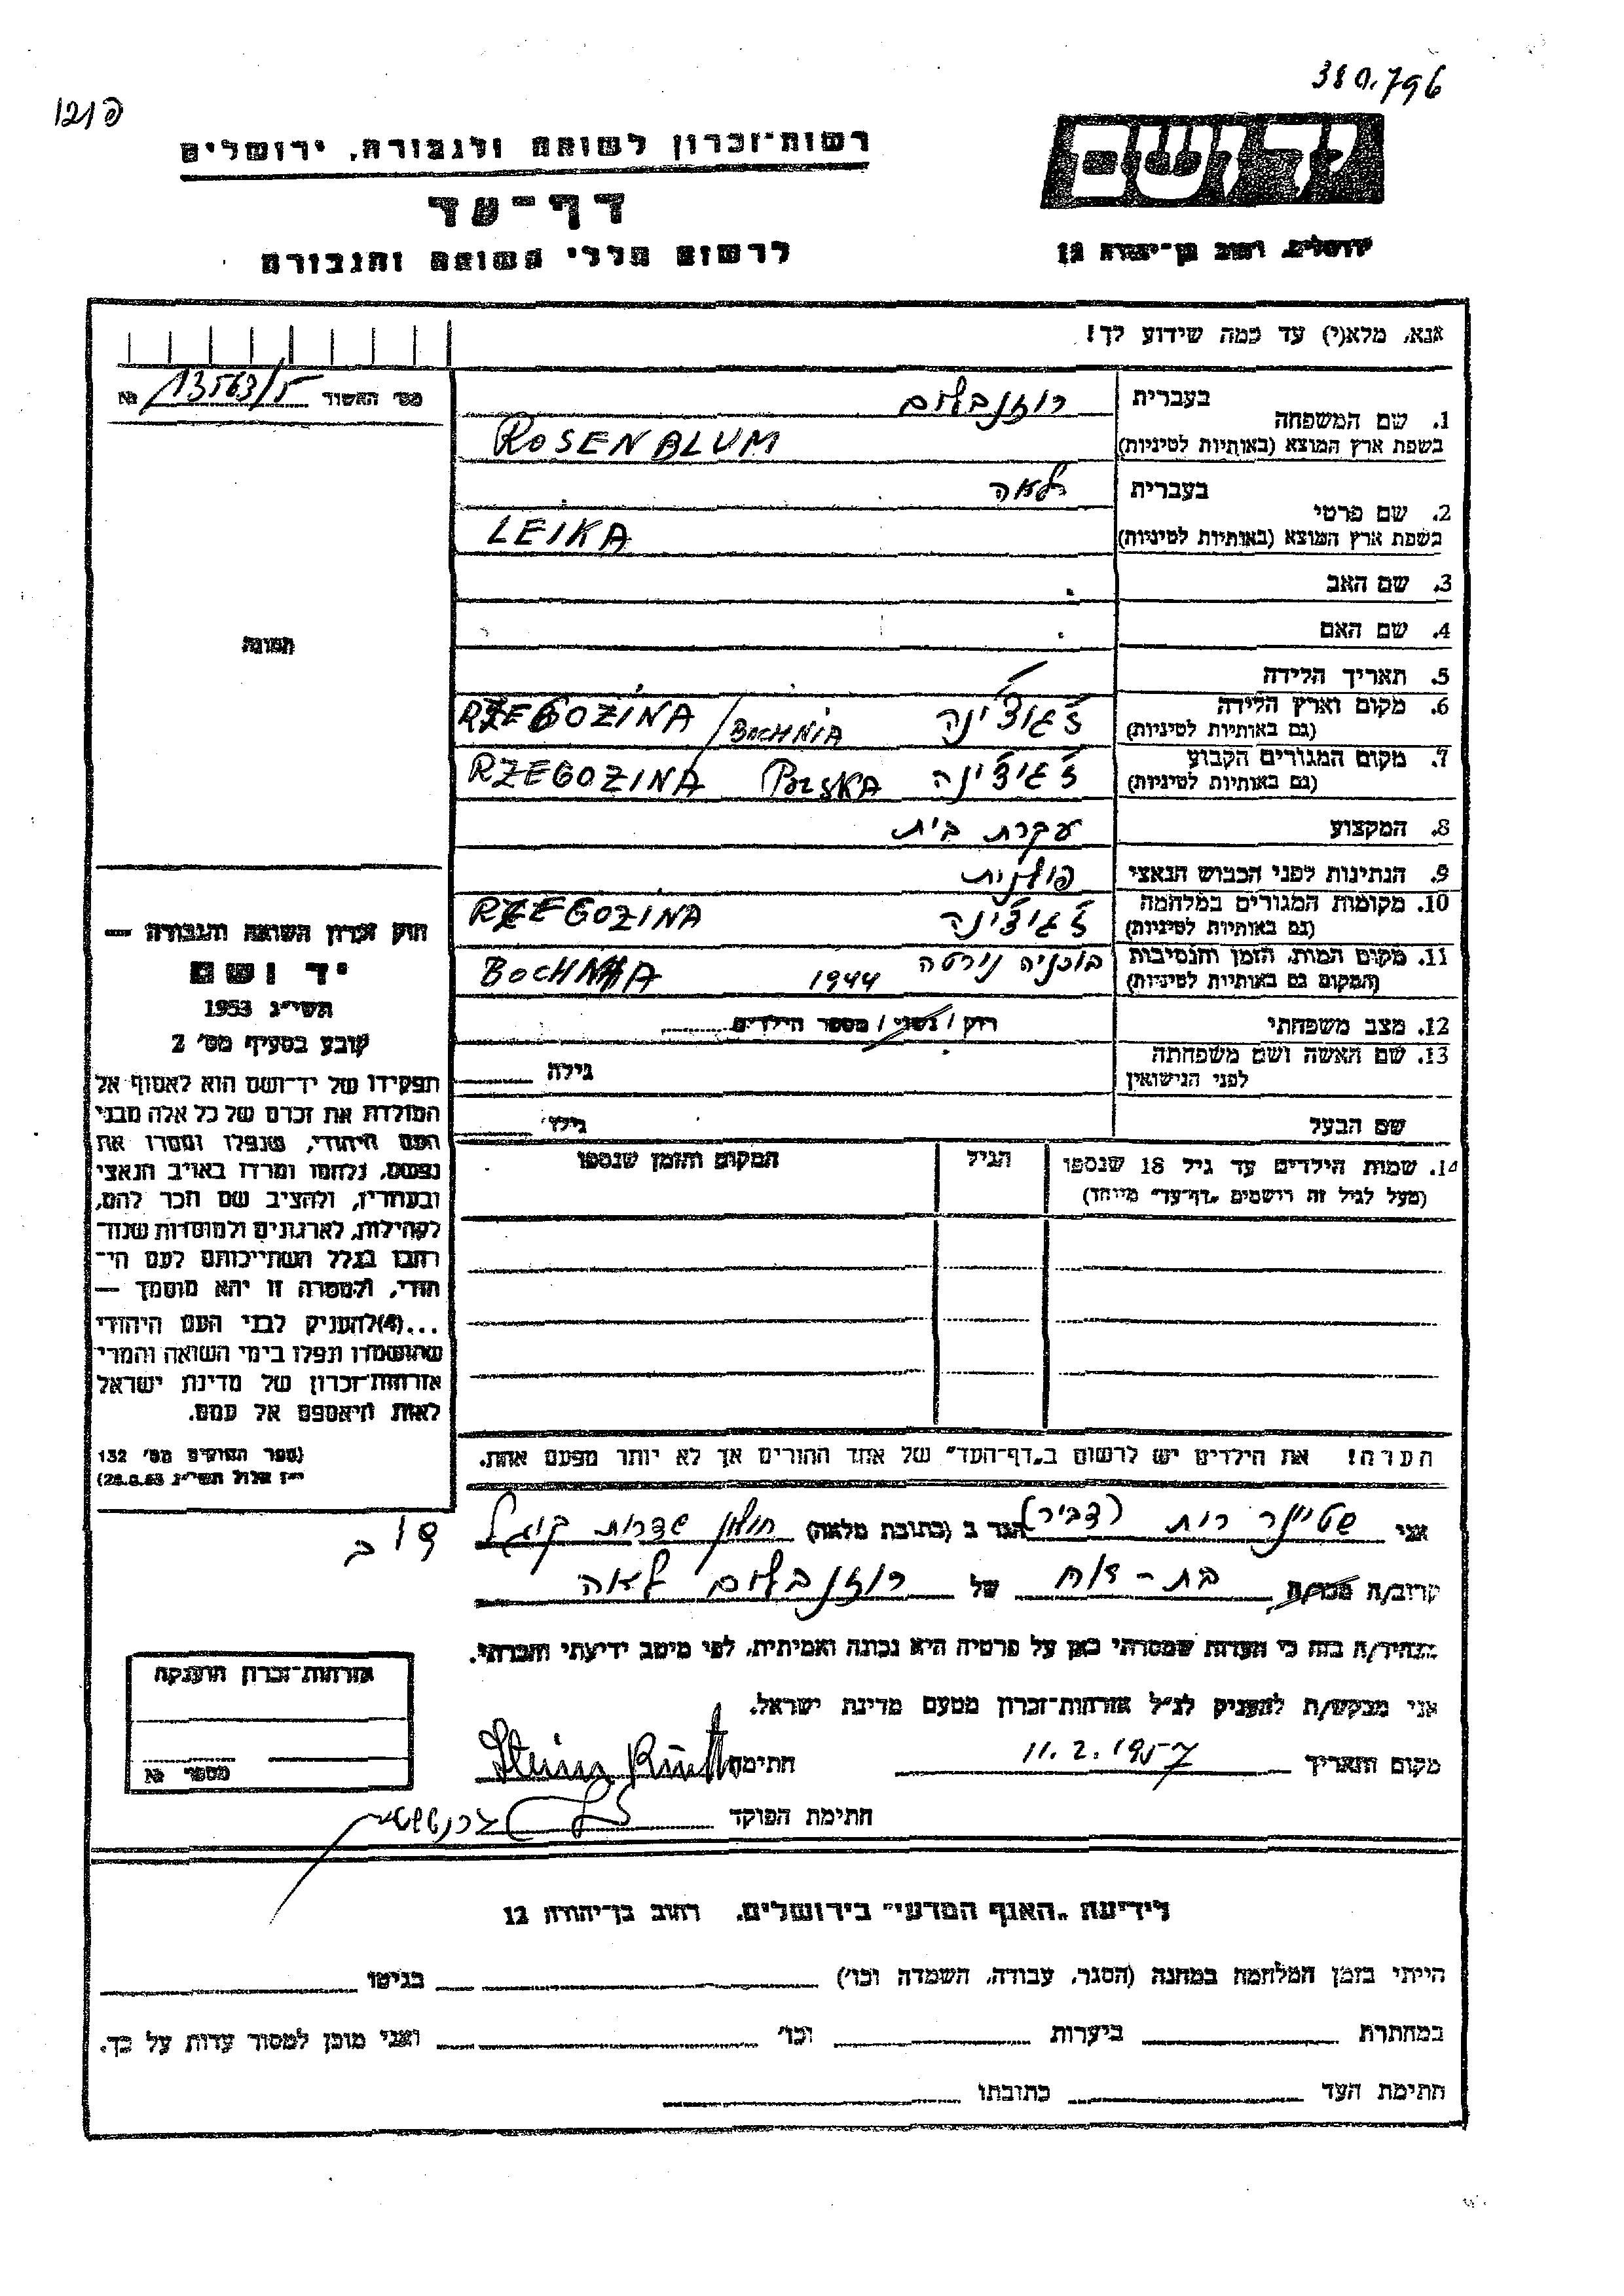 380.796
רשות־זכרון לשואה ולגבורה, ירושלים
יד ושם
דף־עד
לרשום חללי השואה והגבורה
ירושלים, רחוב בן־יהודה 12
אנא, מלא(י) עד כמה שידוע לך!
מס׳ האשור 13563/5 №
בעברית רוזנבלום
1. שם המשפחה
בשפת ארץ המוצא (באותיות לטיניות) ROSENBLUM
בעברית לאה
2. שם פרטי
בשפת ארץ המוצא (באותיות לטיניות) LEIKA
3. שם האב
4. שם האם
תמונה
5. תאריך הלידה
6. מקום וארץ הלידה
(גם באותיות לטיניות) ז׳גוצ׳ינה RZEGOZINA / BOCHNIA
7. מקום המגורים הקבוע
(גם באותיות לטיניות) ז׳גוצ׳ינה POLSKA RZEGOZINA
8. המקצוע עקרת בית
9. הנתינות לפני הכבוש הנאצי פולנית
10. מקומות המגורים במלחמה
(גם באותיות לטיניות) ז׳גוצ׳ינה RZEGOZINA
11. מקום המות, הזמן והנסיבות
(המקום גם באותיות לטיניות) בוכניה 1944 BOCHNIA
12. מצב משפחתי רווק / נשוי / מספר הילדים
13. שם האשה ושם משפחתה
לפני הנישואין גילה
שם הבעל גילו
14. שמות הילדים עד גיל 18 שנספו הגיל המקום והזמן שנספו
(מעל לגיל זה רושמים „דף־עד״ מיוחד)
חוק זכרון השואה והגבורה —
יד ושם
תשי״ג 1953
קובע בסעיף מס׳ 2
תפקידו של יד־ושם הוא לאסוף אל
המולדת את זכרם של כל אלה מבני
העם היהודי, שנפלו ומסרו את
נפשם, נלחמו ומרדו באויב הנאצי
ובעוזריו, ולהציב שם וזכר להם,
לקהילות, לארגונים ולמוסדות שנח־
רבו בגלל השתייכותם לעם הי־
הודי, ולמטרה זו יהא מוסמך —
...(4)להעניק לבני העם היהודי
שהושמדו ונפלו בימי השואה והמרי
אזרחות־זכרון של מדינת ישראל
לאות היאספם אל עמם.
(ספר החוקים מס׳ 132
י״ז אלול תשי״ג 28.8.53)
הערה! את הילדים יש לרשום ב„דף־העד״ של אחד ההורים אך לא יותר מפעם אחת.
אני שטיינר רות (דביר) הגר ב (כתובת מלאה) חולון שדרות קוגל
קרוב/ה מכר/ה בת-דוד של רוזנבלום לאה
מצהיר/ה בזה כי העדות שמסרתי כאן על פרטיה היא נכונה ואמיתית, לפי מיטב ידיעתי והכרתי.
אני מבקש/ת להעניק לנ״ל אזרחות־זכרון מטעם מדינת ישראל.
מקום ותאריך 11.2.1957 חתימה
חתימת הפוקד
אזרחות־זכרון הוענקה
מספר №
לידיעת „האגף המדעי״ בירושלים, רחוב בן־יהודה 12
הייתי בזמן המלחמה במחנה (הסגר, עבודה, השמדה וכו׳) בגיטו
במחתרת ביערות וכו׳ ואני מוכן למסור עדות על כך.
חתימת העד כתובתו